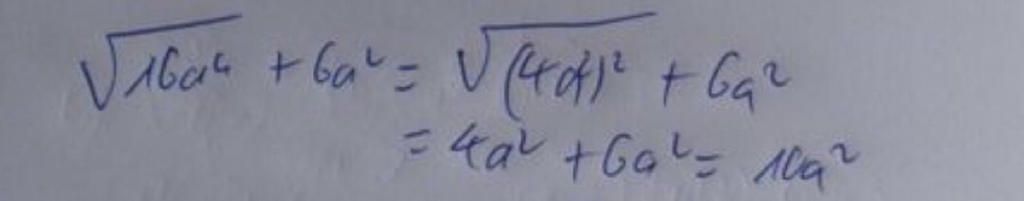 √16a⁴ + 6a² = √(4a)² + 6a²
= 4a² + 6a² = 10a²